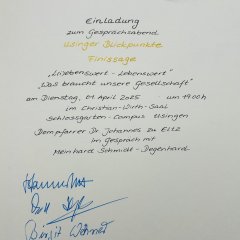 Einladung
zum Gesprächsabend
Usinger Blickpunkte
Finissage
"Liebenswert - Lebenswert"
"Was braucht unsere Gesellschaft"
am Dienstag, 01. April 2025 um 19.00h
im Christian-Wirth-Saal
Schlossgarten-Campus Usingen
Dompfarrer Dr. Johannes zu Eltz
im Gespräch mit
Meinhard Schmidt-Degenhard
Birgit